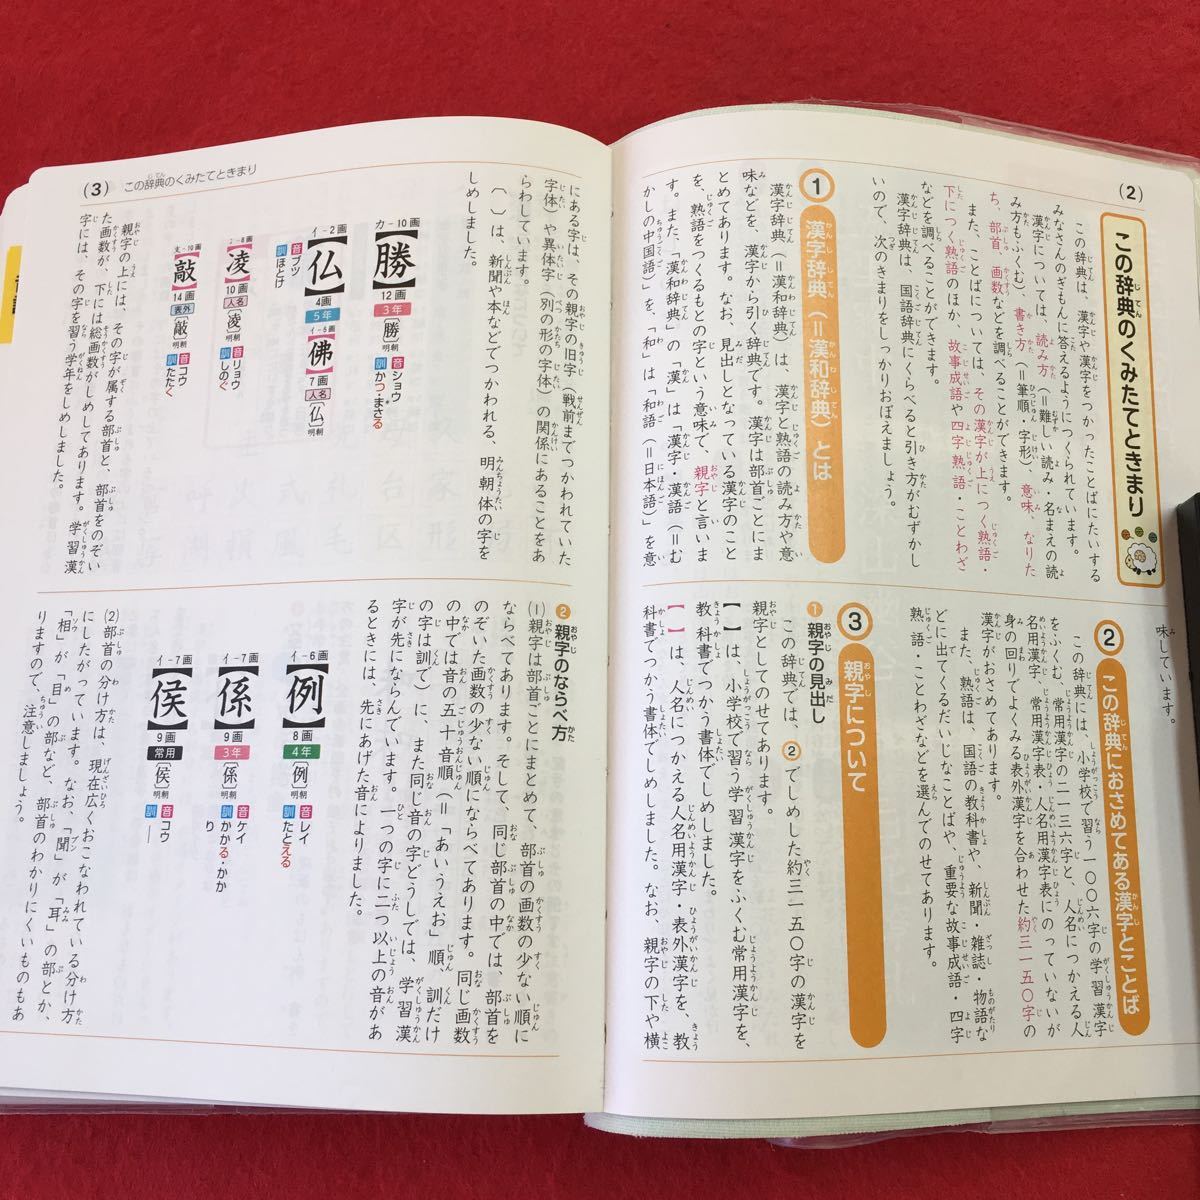 (2)
この辞典のくみたてときまり
この辞典は、漢字や漢字をつかったことばにたいする
みなさんのぎもんに答えるようにつくられています。
漢字については、読み方(=難しい読み・名まえの読
み方もふくむ)、書き方(=筆順・字形)、意味、なりた
ち、部首、画数などを調べることができます。
また、ことばについては、その漢字が上につく熟語・
下につく熟語のほか、故事成語や四字熟語・ことわざ
などを調べることができます。
漢字辞典は、国語辞典にくらべると引き方がむずかし
いので、次のきまりをしっかりおぼえましょう。
1 漢字辞典(=漢和辞典)とは
漢字辞典(=漢和辞典)は、漢字と熟語の読み方や意
味などを、漢字から引く辞典です。漢字は部首ごとにま
とめてあります。なお、見出しとなっている漢字のこと
を、熟語をつくるもとの字という意味で、親字と言いま
す。また、「漢和辞典」の「漢」は「漢字・漢語(=む
かしの中国語)」を、「和」は「和語(=日本語)」を意
味しています。
2 この辞典におさめてある漢字とことば
この辞典には、小学校で習う一〇〇六字の学習漢字
をふくむ、常用漢字の二一三六字と、人名につかえる人
名用漢字、常用漢字表・人名用漢字表にのっていないが
身の回りでよくみる表外漢字を合わせた約三一五〇字の
漢字がおさめてあります。
また、熟語は、国語の教科書や、新聞・雑誌・物語な
どに出てくるだいじなことばや、重要な故事成語・四字
熟語・ことわざなどを選んでのせてあります。
3 親字について
1 親字の見出し
この辞典では、2でしめした約三一五〇字の漢字を
親字としてのせてあります。
【 】は、小学校で習う学習漢字をふくむ常用漢字を、
教科書でつかう書体でしめしました。
【 】は、人名につかえる人名用漢字・表外漢字を、教
科書でつかう書体でしめしました。なお、親字の下や横
(3) この辞典のくみたてときまり
にある字は、その親字の旧字(戦前までつかわれていた
字体)や異体字(別の形の字体)の関係にあることをあ
らわしています。
〔 〕は、新聞や本などでつかわれる、明朝体の字を
しめしました。
カ-10画
【勝】
12画
3年
〔勝〕明朝
音 ショウ
訓 かつ・まさる
イ-2画
【仏】
4画
5年
イ-5画
【佛】
7画
人名
〔仏〕明朝
音 ブツ
訓 ほとけ
冫-8画
【凌】
10画
人名
〔凌〕明朝
音 リョウ
訓 しのぐ
攴-10画
【敲】
14画
表外
〔敲〕明朝
音 コウ
訓 たたく
親字の上には、その字が属する部首と、部首をのぞい
た画数が、下には総画数がしめしてあります。学習漢
字には、その字を習う学年をしめしました。
2 親字のならべ方
(1)親字は部首ごとにまとめて、部首の画数の少ない順に
ならべてあります。そして、同じ部首の中では、部首を
のぞいた画数の少ない順にならべてあります。同じ画数
の中では音の五十音順(=「あいうえお」順、訓だけ
の字は訓で)に、また同じ音の字どうしでは、学習漢
字が先にならんでいます。一つの字に二つ以上の音があ
るときには、先にあげた音によりました。
イ-6画
【例】
8画
4年
〔例〕明朝
音 レイ
訓 たとえる
イ-7画
【係】
9画
3年
〔係〕明朝
音 ケイ
訓 かかる・かか
り
イ-7画
【侯】
9画
常用
〔侯〕明朝
音 コウ
訓 ―
(2)部首の分け方は、現在広くおこなわれている分け方
にしたがっています。なお、「聞」が「耳」の部とか、
「相」が「目」の部など、部首のわかりにくいものもあ
りますので、注意しましょう。